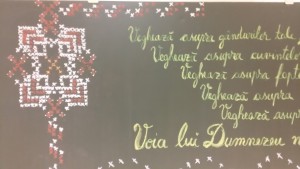 Veghează asupra gândurilor tale
Veghează asupra cuvintelor
Veghează asupra fapt
Veghează asupra
Veghează asup
Voia lui Dumnezeu n